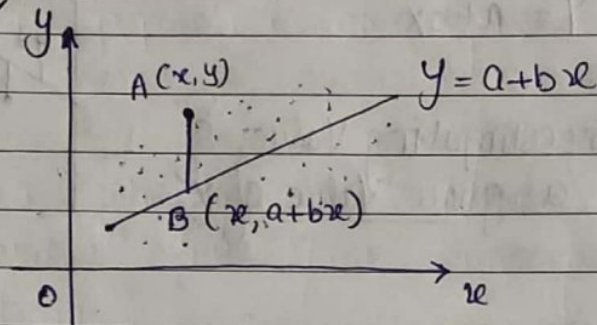 y
A (x, y)
y = a+bx
B (x, a+bx)
O
x